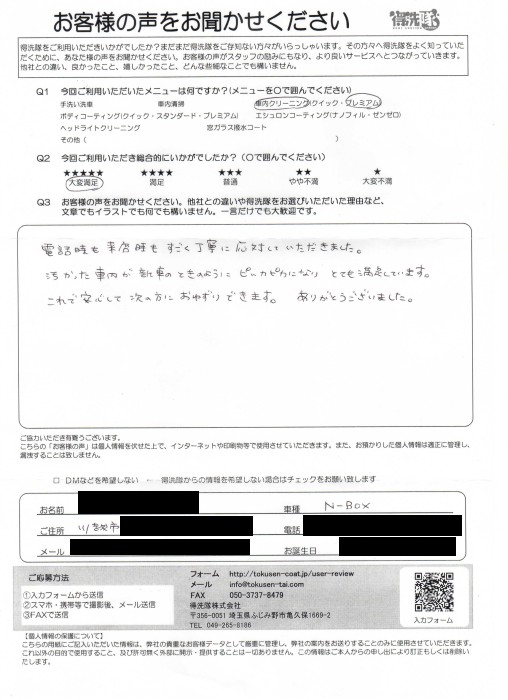 お客様の声をお聞かせください
得洗隊
得洗隊をご利用いただきいかがでしたか？まだまだ得洗隊をご存知ない方々がいらっしゃいます。その方々へ得洗隊をよく知っていた
だくために、あなた様の声をお聞かせください。お客様の声がスタッフの励みにもなり、より良いサービスへとつながっていきます。
他社との違い、良かったこと、嬉しかったこと、どんな些細なことでも構いません。
Q1 今回ご利用いただいたメニューは何ですか？(メニューを〇で囲んでください)
手洗い洗車 車内清掃 車内クリーニング(クイック・プレミアム)
ボディコーティング(クイック・スタンダード・プレミアム) エシュロンコーティング(ナノフィル・ゼンゼロ)
ヘッドライトクリーニング 窓ガラス撥水コート
その他（ ）
Q2 今回ご利用いただき総合的にいかがでしたか？（〇で囲んでください）
★★★★★ ★★★★ ★★★ ★★ ★
大変満足 満足 普通 やや不満 大変不満
Q3 お客様の声をお聞かせください。他社との違いや得洗隊をお選びいただいた理由など、
文章でもイラストでも何でも構いません。一言だけでも大歓迎です。
電話時も来店時もすごく丁寧に応対していただきました。
汚かった車内が新車のときのようにピッカピカになり とても満足しています。
これで安心して次の方におゆずりできます。 ありがとうございました。
ご協力いただき有難うございます。
こちらの「お客様の声」は個人情報を伏せた上で、インターネットや印刷物等で使用させていただきます。また、お預かりした個人情報は適正に管理し、
漏洩することは致しません。
□ DMなどを希望しない ← 得洗隊からの情報を希望しない場合はチェックをお願い致します
お名前 車種 N-BOX
ご住所 川越市 電話
メール お誕生日
ご応募方法
①入力フォームから送信
②スマホ・携帯等で撮影後、メール送信
③FAXで送信
フォーム http://tokusen-coat.jp/user-review
メール info@tokusen-tai.com
FAX 050-3737-8479
得洗隊株式会社
〒356-0051 埼玉県ふじみ野市亀久保1669-2
TEL 049-265-6186
入力フォーム
【個人情報の保護について】
こちらの用紙にご記入いただいた情報は、弊社の貴重なお客様データとして厳重に管理し、弊社の案内をお送りすることのみに使用させていただきます。
これ以外の目的で使用すること、及び許可無く外部に開示・提供することは一切ありません。この情報はご本人からの申し出により訂正もしくは削除い
たします。